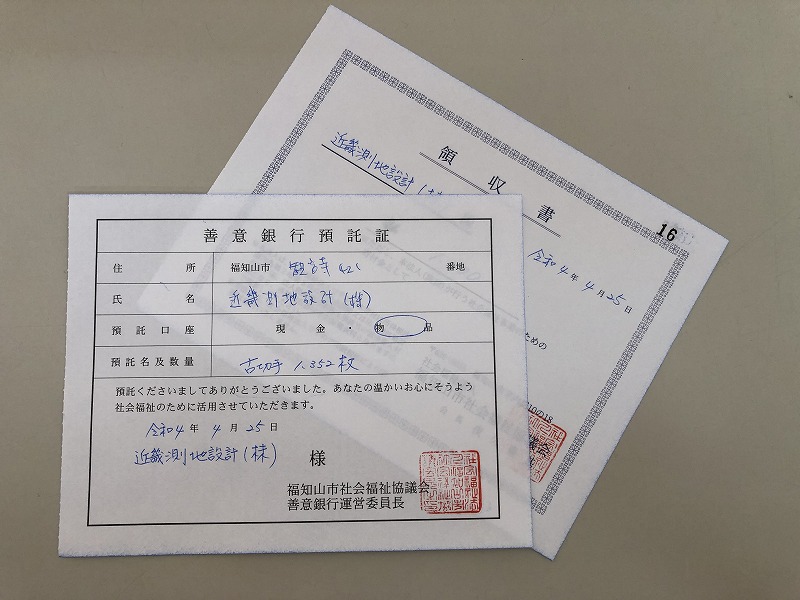 善意銀行預託証
住所 福知山市 観音寺 421 番地
氏名 近畿測地設計(株)
預託口座 現金・物品
預託名及数量 古切手 1,352枚
預託くださいましてありがとうございました。あなたの温かいお心にそうよう
社会福祉のために活用させていただきます。
令和4年4月25日
近畿測地設計(株) 様
福知山市社会福祉協議会
善意銀行運営委員長
領収書
16
近畿測地設計(株
令和4年4月25日
ための
10の18